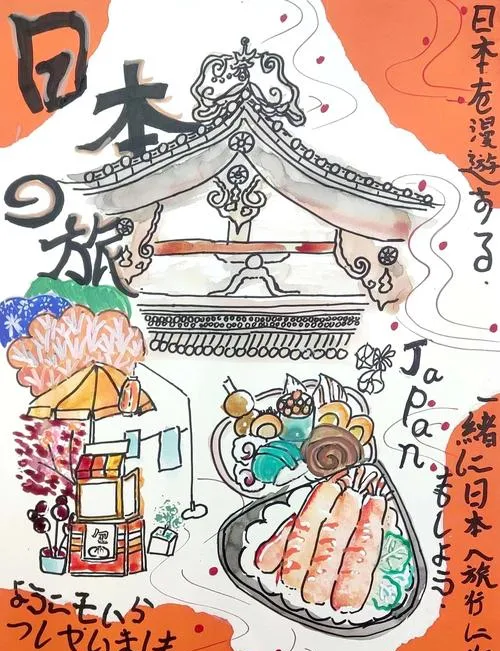 日本の旅
日本を漫遊する.
Japan.
一緒に日本へ旅行に
もしよう.
ようこそいら